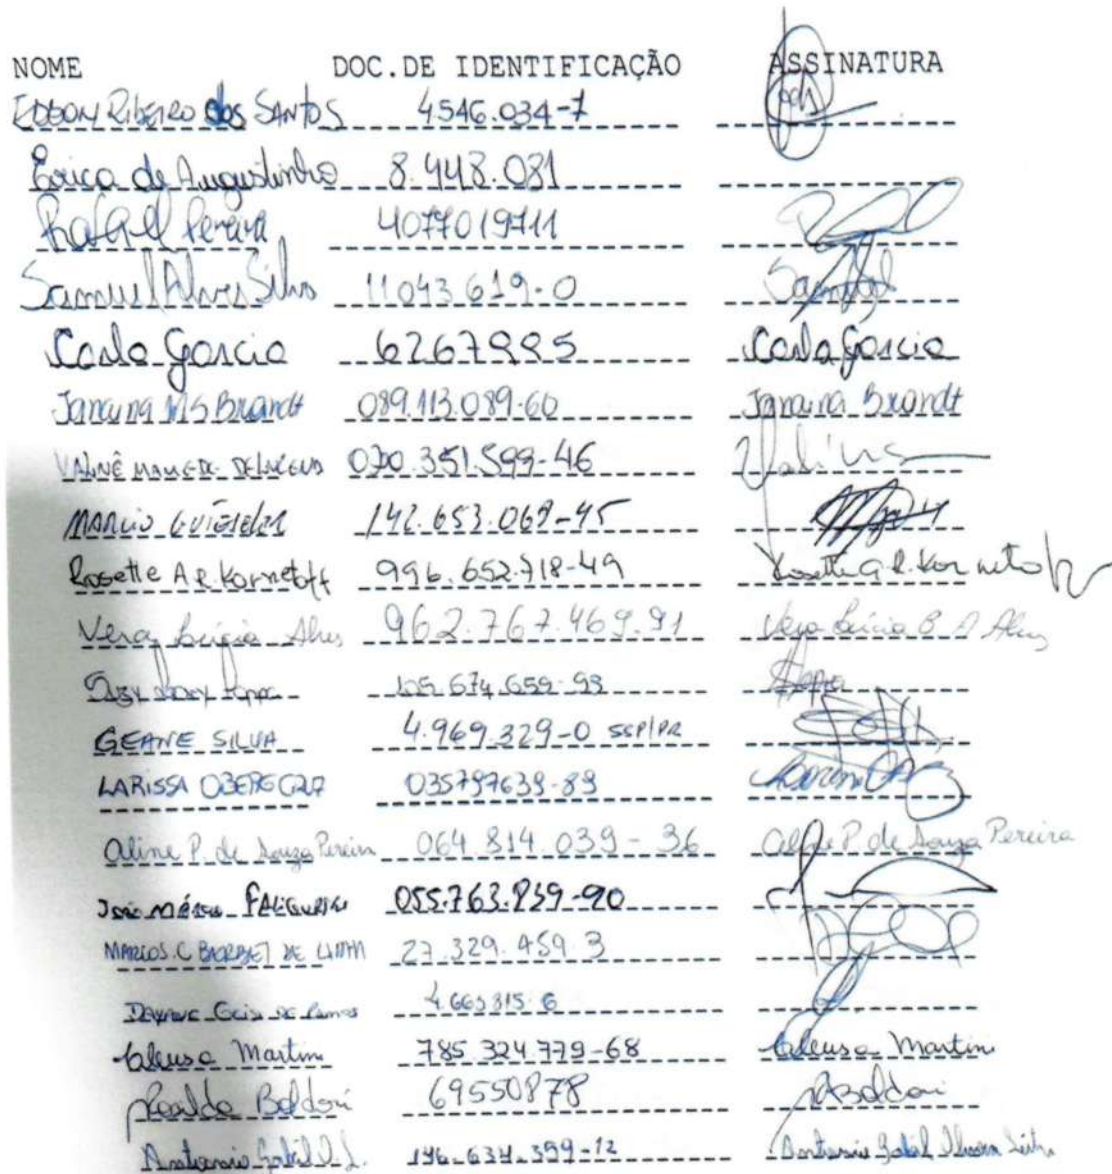 NOME DOC.DE IDENTIFICAÇÃO ASSINATURA
EDSON RIBEIRO dos SANTOS 4.546.034-7
Érica de Augustinho 8.448.081
Rafael Pereira 4077019711
Samuel Alves Silva 11043.619-0
Carla Garcia 6267995 Carla Garcia
Janaina MS Brandt 089.113.089-60 Janaina Brandt
070.351.599-46
MARCIO 142.653.069-45
Rosette A R. Kornetoff 996.652.718-49 Rosette A R. Kornetoff
Vera Lúcia Alves 962.767.469.91 Vera Lúcia B A Alves
105.674.659-99
GEANE SILVA 4.969.329-0 SSP/PR
LARISSA 035797639-89
Aline P. de Souza Pereira 064.814.039-36 Aline P. de Souza Pereira
João 055.763.839-90
MARCOS.C DE LIMA 27.329.459.3
4.663.815-6
Cleusa Martin 785 324 779-68 Cleusa Martin
Boldori 69550878 Boldori
Antonio 146.634.399-12 Antonio